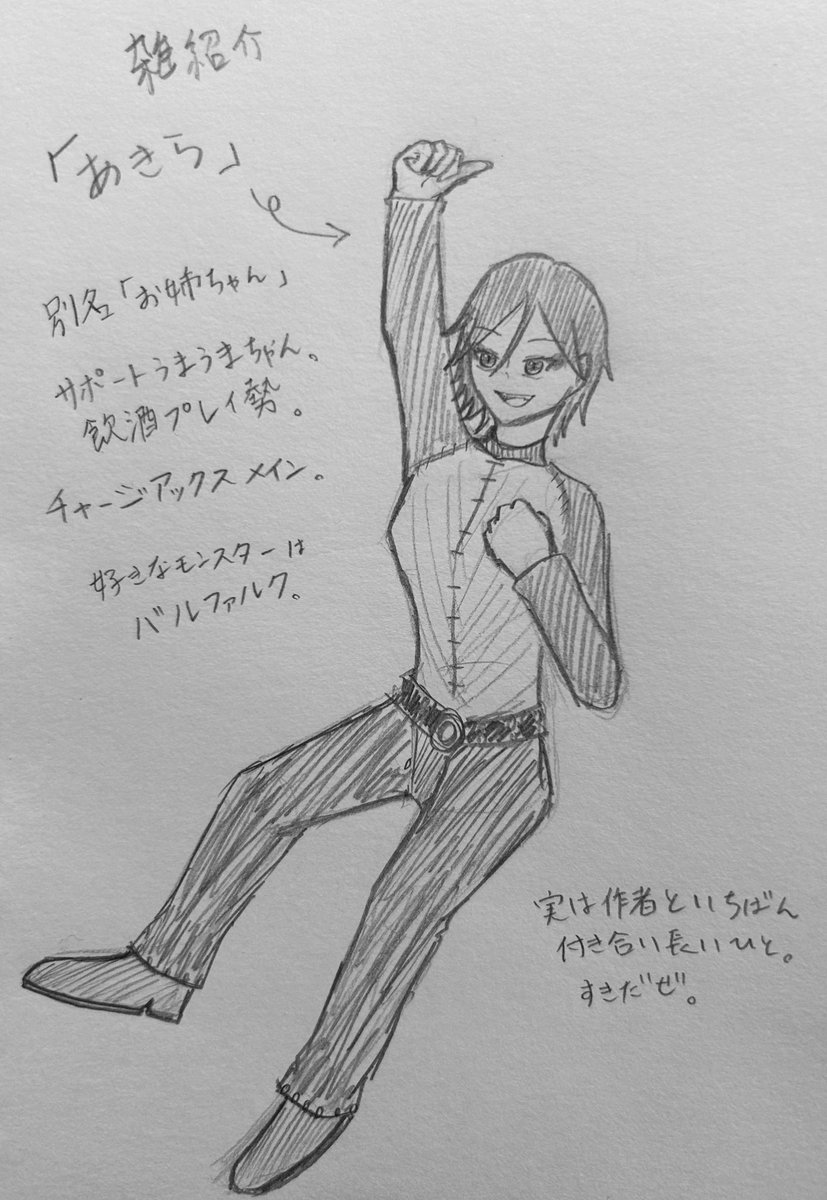 雑紹介
「あきら」
別名「お姉ちゃん」
サポートうまうまちゃん。
飲酒プレイ勢。
チャージアックスメイン。
好きなモンスターは
バルファルク。
実は作者といちばん
付き合い長いひと。
すきだぜ。